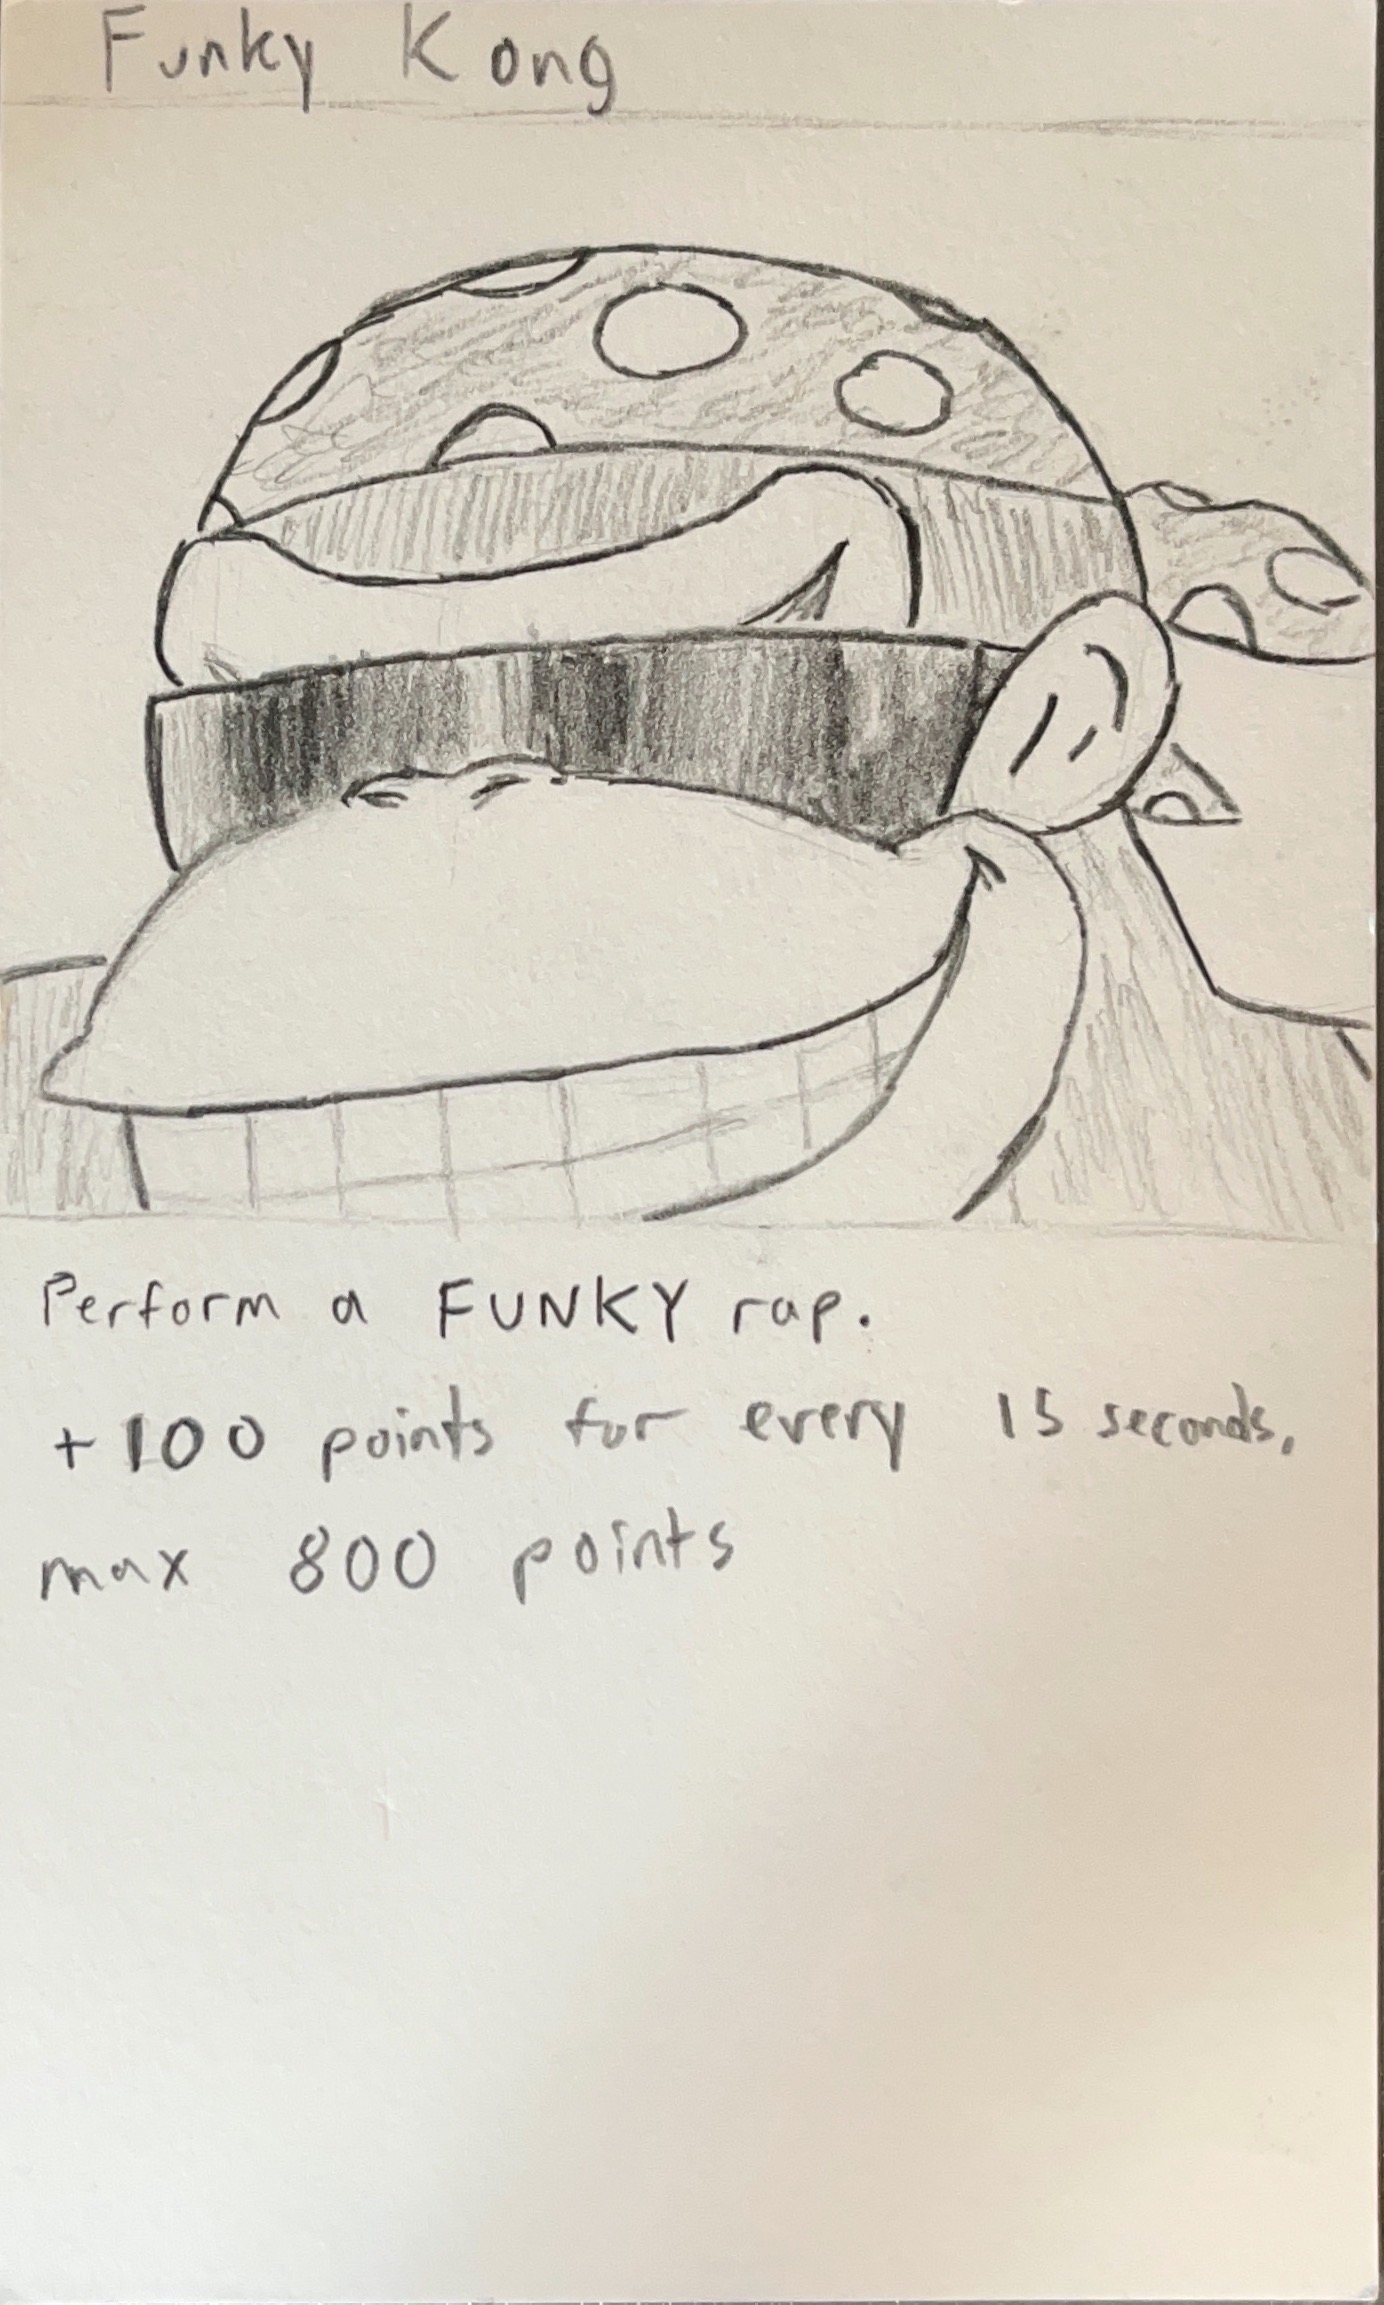 Funky Kong
Perform a FUNKY rap.
+100 points for every 15 seconds.
max 800 points